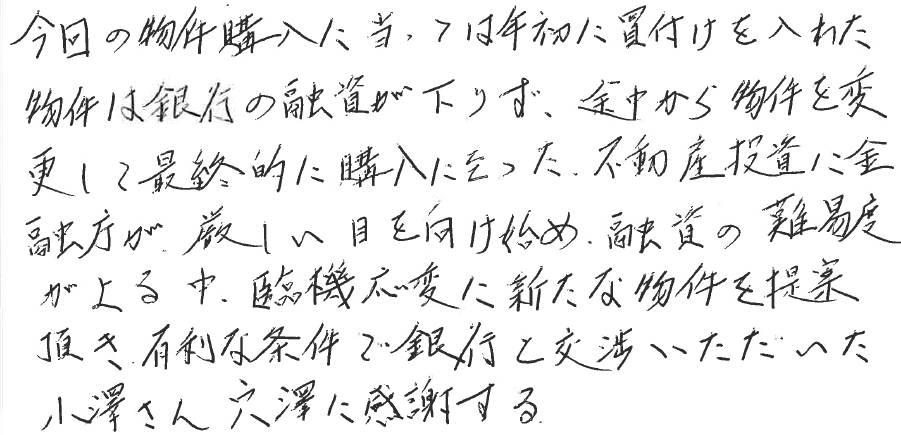 今回の物件購入に当っては年初に買付けを入れた
物件は銀行の融資が下りず、途中から物件を変
更して最終的に購入に至った。不動産投資に金
融庁が厳しい目を向け始め、融資の難易度
が上る中、臨機応変に新たな物件を提案
頂き有利な条件で銀行と交渉いただいた
小澤さん穴澤に感謝する。